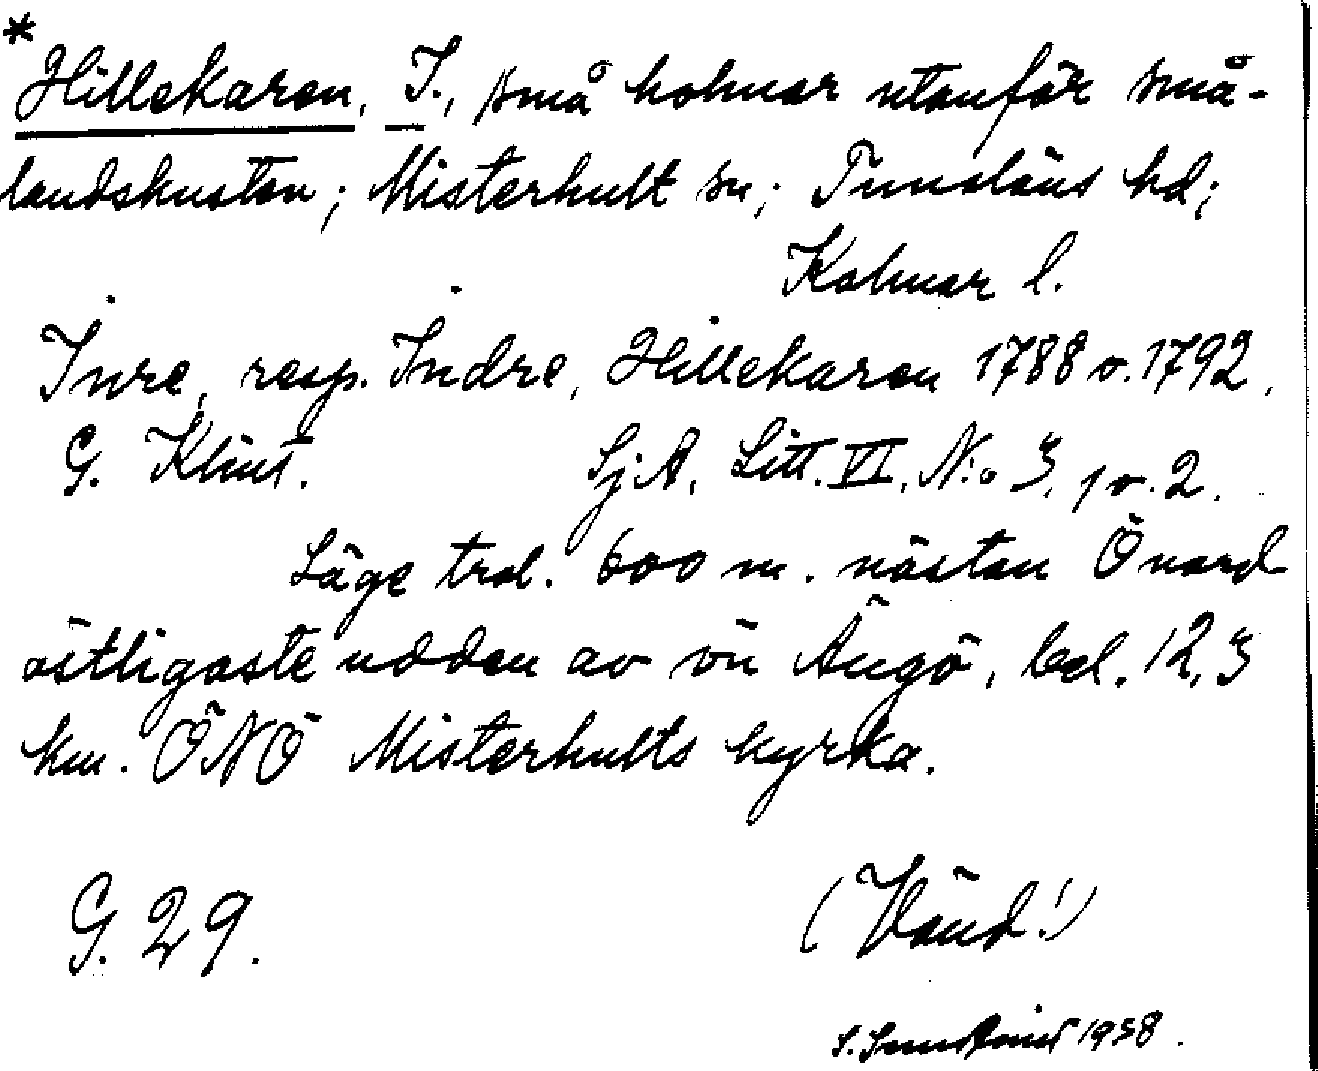 *
Hillekaren, I., små holmar utanför små-
landskusten; Misterhult sn; Tunaläns hd;
Kalmar l.
Inre, resp. Indre, Hillekaren 1788 o. 1792,
G. Klint. Sj.A. Litt. VI, N:o 3, 1 o. 2.
Läge trol. 600 m. nästan Ö nord
östligaste udden av ön Ängö, bel. 12,3
km. ÖNÖ Misterhults kyrka.
G. 29. (Vänd!)
S. 1958.